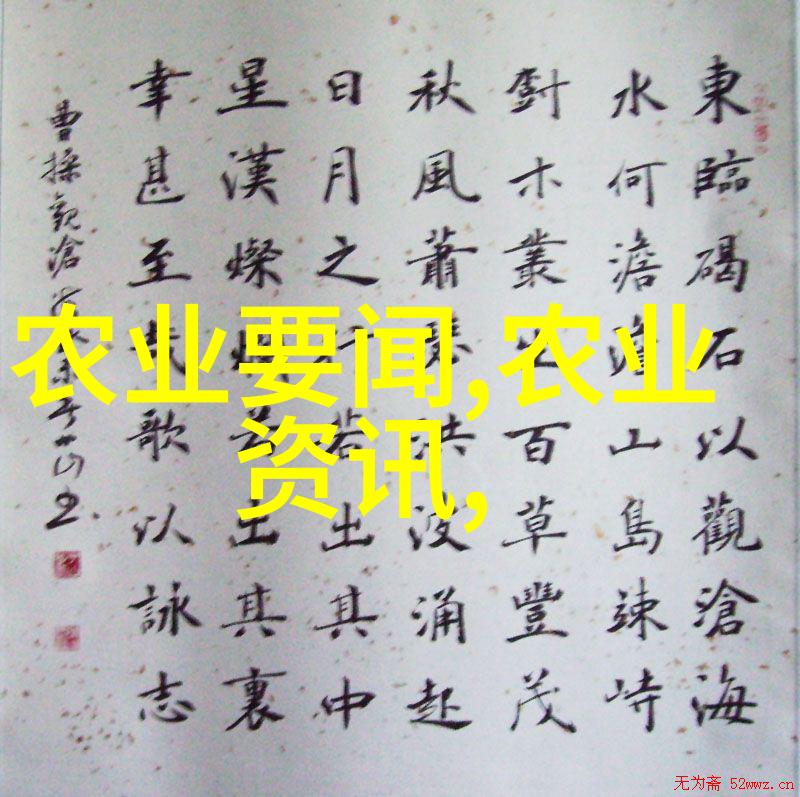 東臨碣石以觀滄海
水何澹澹山島竦峙
木叢生百草豐茂
秋風蕭瑟洪波涌起
日月之行若出其中
星漢燦爛若出其裏
幸甚至哉歌以詠志
曹操觀滄海
农业要闻,农业
资讯,
无为斋 52wwz.cn